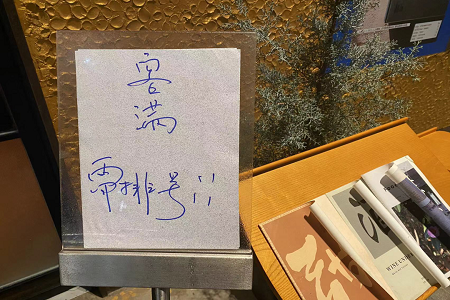 客
满
需排号!!
WINE